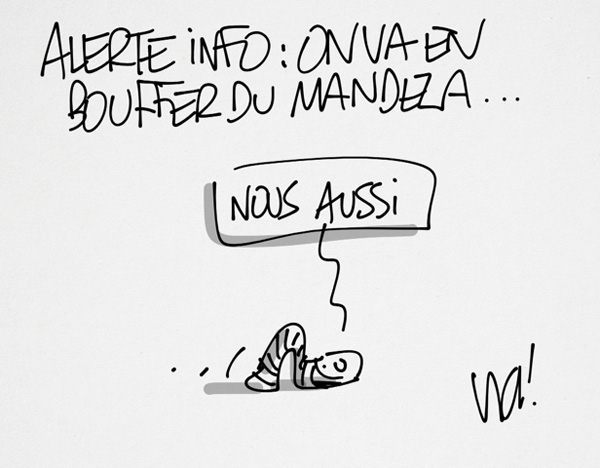 ALERTE iNFO : ON VA EN
BOUFFER DU MANDELA ...
NOUS AUSSi